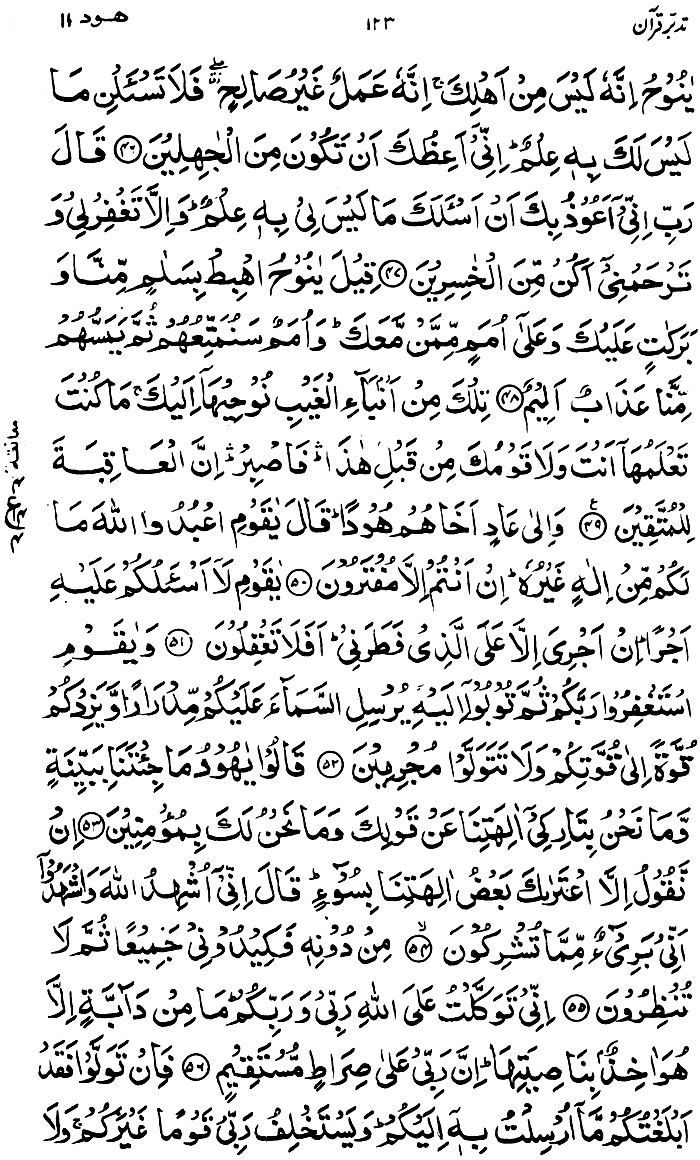 تدبّر قرآن ۱۲۳ هود ۱۱
يٰنُوْحُ اِنَّهٗ لَيْسَ مِنْ اَهْلِكَ ۚ اِنَّهٗ عَمَلٌ غَيْرُ صَالِحٍ ۖ فَلَا تَسْـَٔلْنِ مَا
لَيْسَ لَكَ بِهٖ عِلْمٌ ؕ اِنِّيْٓ اَعِظُكَ اَنْ تَكُوْنَ مِنَ الْجٰهِلِيْنَ ﴿۴۶﴾ قَالَ
رَبِّ اِنِّيْٓ اَعُوْذُ بِكَ اَنْ اَسْـَٔلَكَ مَا لَيْسَ لِيْ بِهٖ عِلْمٌ ؕ وَاِلَّا تَغْفِرْ لِيْ وَ
تَرْحَمْنِيْٓ اَكُنْ مِّنَ الْخٰسِرِيْنَ ﴿۴۷﴾ قِيْلَ يٰنُوْحُ اهْبِطْ بِسَلٰمٍ مِّنَّا وَ
بَرَكٰتٍ عَلَيْكَ وَعَلٰٓى اُمَمٍ مِّمَّنْ مَّعَكَ ؕ وَاُمَمٌ سَنُمَتِّعُهُمْ ثُمَّ يَمَسُّهُمْ
مِّنَّا عَذَابٌ اَلِيْمٌ ﴿۴۸﴾ تِلْكَ مِنْ اَنْۢبَآءِ الْغَيْبِ نُوْحِيْهَآ اِلَيْكَ ۚ مَا كُنْتَ
تَعْلَمُهَآ اَنْتَ وَلَا قَوْمُكَ مِنْ قَبْلِ هٰذَا ۛ فَاصْبِرْ ۛ اِنَّ الْعَاقِبَةَ
لِلْمُتَّقِيْنَ ﴿۴۹﴾ وَاِلٰى عَادٍ اَخَاهُمْ هُوْدًا ؕ قَالَ يٰقَوْمِ اعْبُدُوا اللّٰهَ مَا
لَكُمْ مِّنْ اِلٰهٍ غَيْرُهٗ ؕ اِنْ اَنْتُمْ اِلَّا مُفْتَرُوْنَ ﴿۵۰﴾ يٰقَوْمِ لَآ اَسْـَٔلُكُمْ عَلَيْهِ
اَجْرًا ؕ اِنْ اَجْرِيَ اِلَّا عَلَى الَّذِيْ فَطَرَنِيْ ؕ اَفَلَا تَعْقِلُوْنَ ﴿۵۱﴾ وَيٰقَوْمِ
اسْتَغْفِرُوْا رَبَّكُمْ ثُمَّ تُوْبُوْٓا اِلَيْهِ يُرْسِلِ السَّمَآءَ عَلَيْكُمْ مِّدْرَارًا وَّيَزِدْكُمْ
قُوَّةً اِلٰى قُوَّتِكُمْ وَلَا تَتَوَلَّوْا مُجْرِمِيْنَ ﴿۵۲﴾ قَالُوْا يٰهُوْدُ مَا جِئْتَنَا بِبَيِّنَةٍ
وَّمَا نَحْنُ بِتَارِكِيْٓ اٰلِهَتِنَا عَنْ قَوْلِكَ وَمَا نَحْنُ لَكَ بِمُؤْمِنِيْنَ ﴿۵۳﴾ اِنْ
نَّقُوْلُ اِلَّا اعْتَرٰىكَ بَعْضُ اٰلِهَتِنَا بِسُوْٓءٍ ؕ قَالَ اِنِّيْٓ اُشْهِدُ اللّٰهَ وَاشْهَدُوْٓا
اَنِّيْ بَرِيْٓءٌ مِّمَّا تُشْرِكُوْنَ ﴿۵۴﴾ مِنْ دُوْنِهٖ فَكِيْدُوْنِيْ جَمِيْعًا ثُمَّ لَا
تُنْظِرُوْنِ ﴿۵۵﴾ اِنِّيْ تَوَكَّلْتُ عَلَى اللّٰهِ رَبِّيْ وَرَبِّكُمْ ؕ مَا مِنْ دَآبَّةٍ اِلَّا
هُوَ اٰخِذٌۢ بِنَاصِيَتِهَا ؕ اِنَّ رَبِّيْ عَلٰى صِرَاطٍ مُّسْتَقِيْمٍ ﴿۵۶﴾ فَاِنْ تَوَلَّوْا فَقَدْ
اَبْلَغْتُكُمْ مَّآ اُرْسِلْتُ بِهٖٓ اِلَيْكُمْ ؕ وَيَسْتَخْلِفُ رَبِّيْ قَوْمًا غَيْرَكُمْ ۚ وَلَا
معانقة